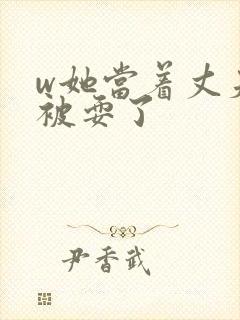 w她当着丈夫
被耍了
尹香武